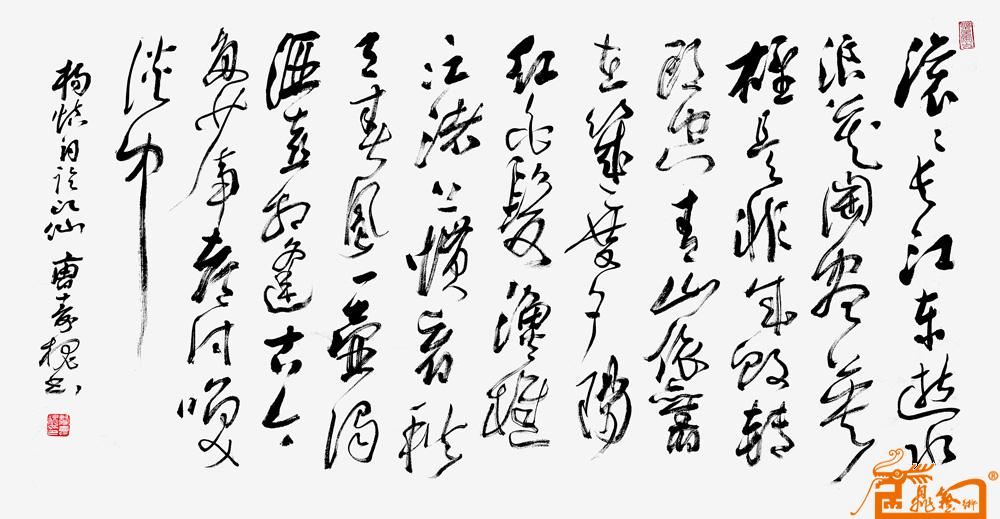 滚滚长江东逝水
浪花淘尽英
雄是非成败转
头空青山依舊
在幾度夕陽
红白髮漁樵
江渚上惯看秋
月春風一壺浊
酒喜相逢古今
多少事都付笑
谈中
杨慎词临江仙 书